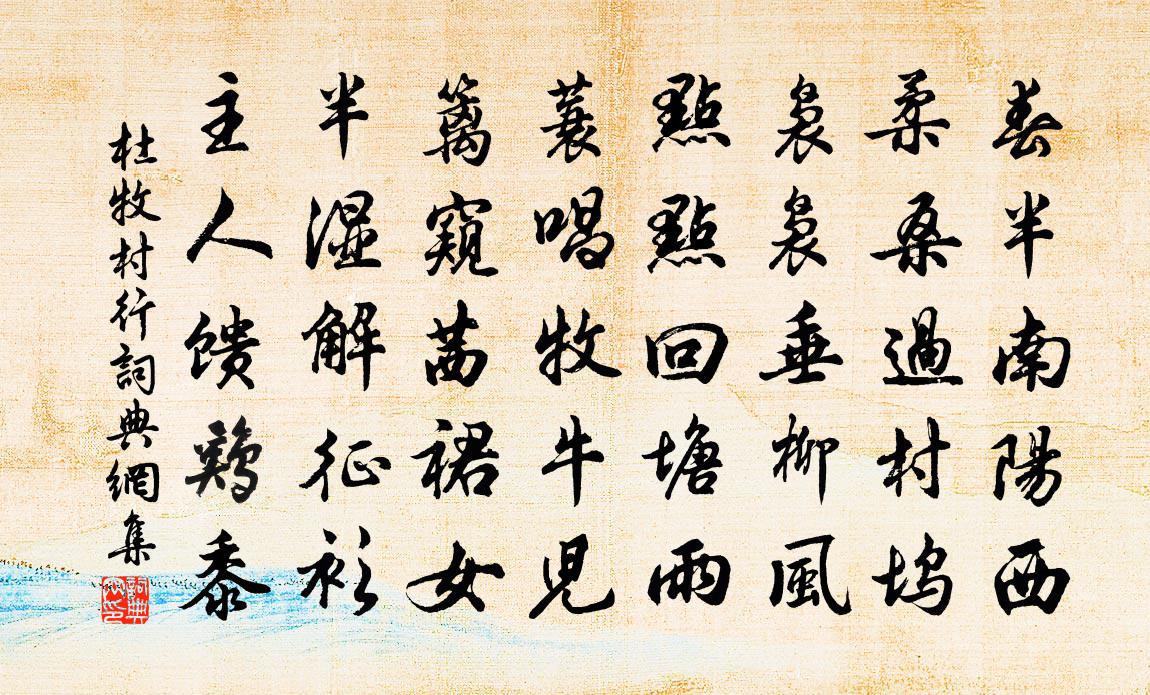 春半南陽西
柔桑過村塢
裊裊垂柳風
點點回塘雨
蓑唱牧牛児
篱窺茜裙女
半湿解征衫
主人馈鷄黍
杜牧村行詞典網集